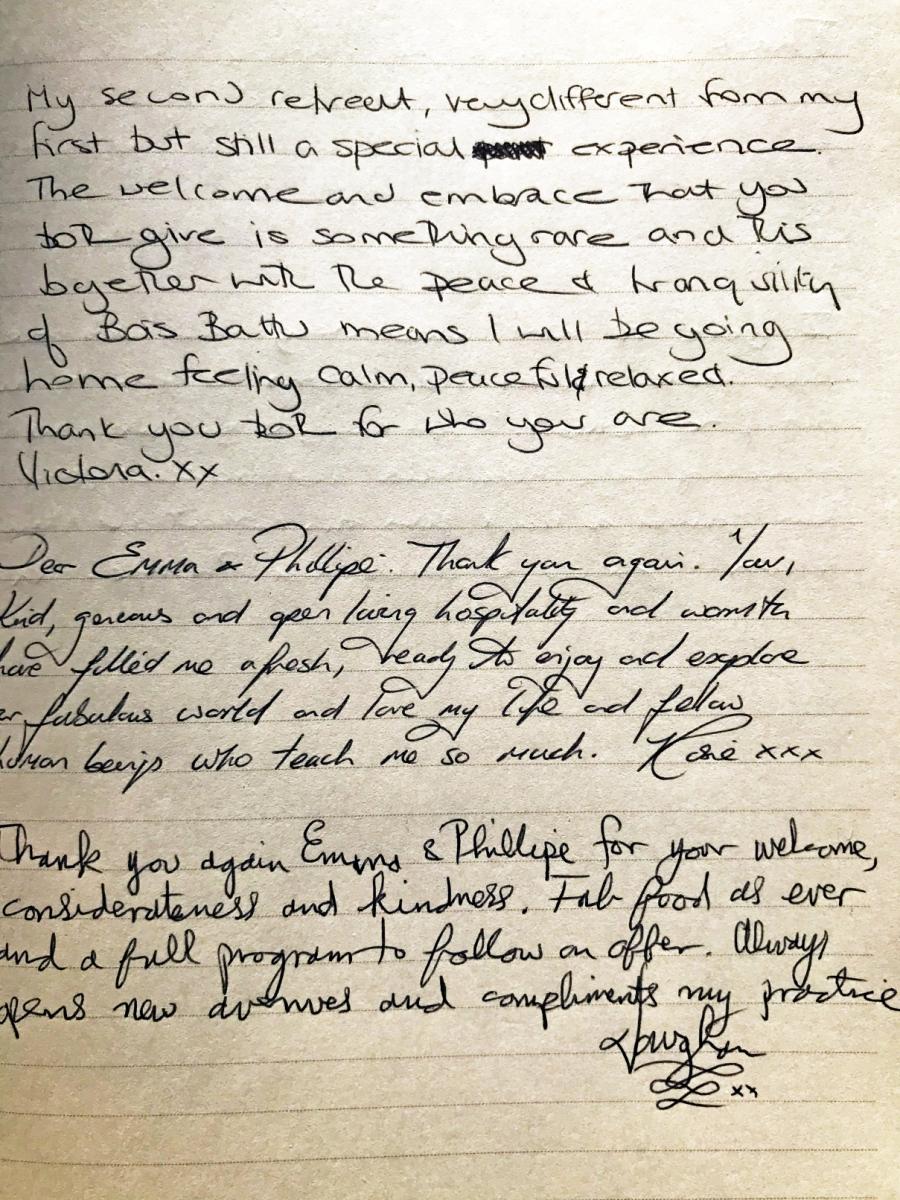 My second retreat, very different from my
first but still a special experience.
The welcome and embrace that you
both give is something rare and this
together with the peace & tranquility
of Bois Battu means I will be going
home feeling calm, peaceful & relaxed.
Thank you both for who you are.
Victoria. xx
Dear Emma & Phillipe. Thank you again. Your,
Kind, generous and open living hospitality and warmth
have filled me afresh, ready to enjoy and explore
our fabulous world and love my life and fellow
human beings who teach me so much. Rosie xxx
Thank you again Emma & Phillipe for your welcome,
considerateness and kindness. Fab food as ever
and a full program to follow on offer. Always
opens new avenues and compliments my practice
Vaughan
xx